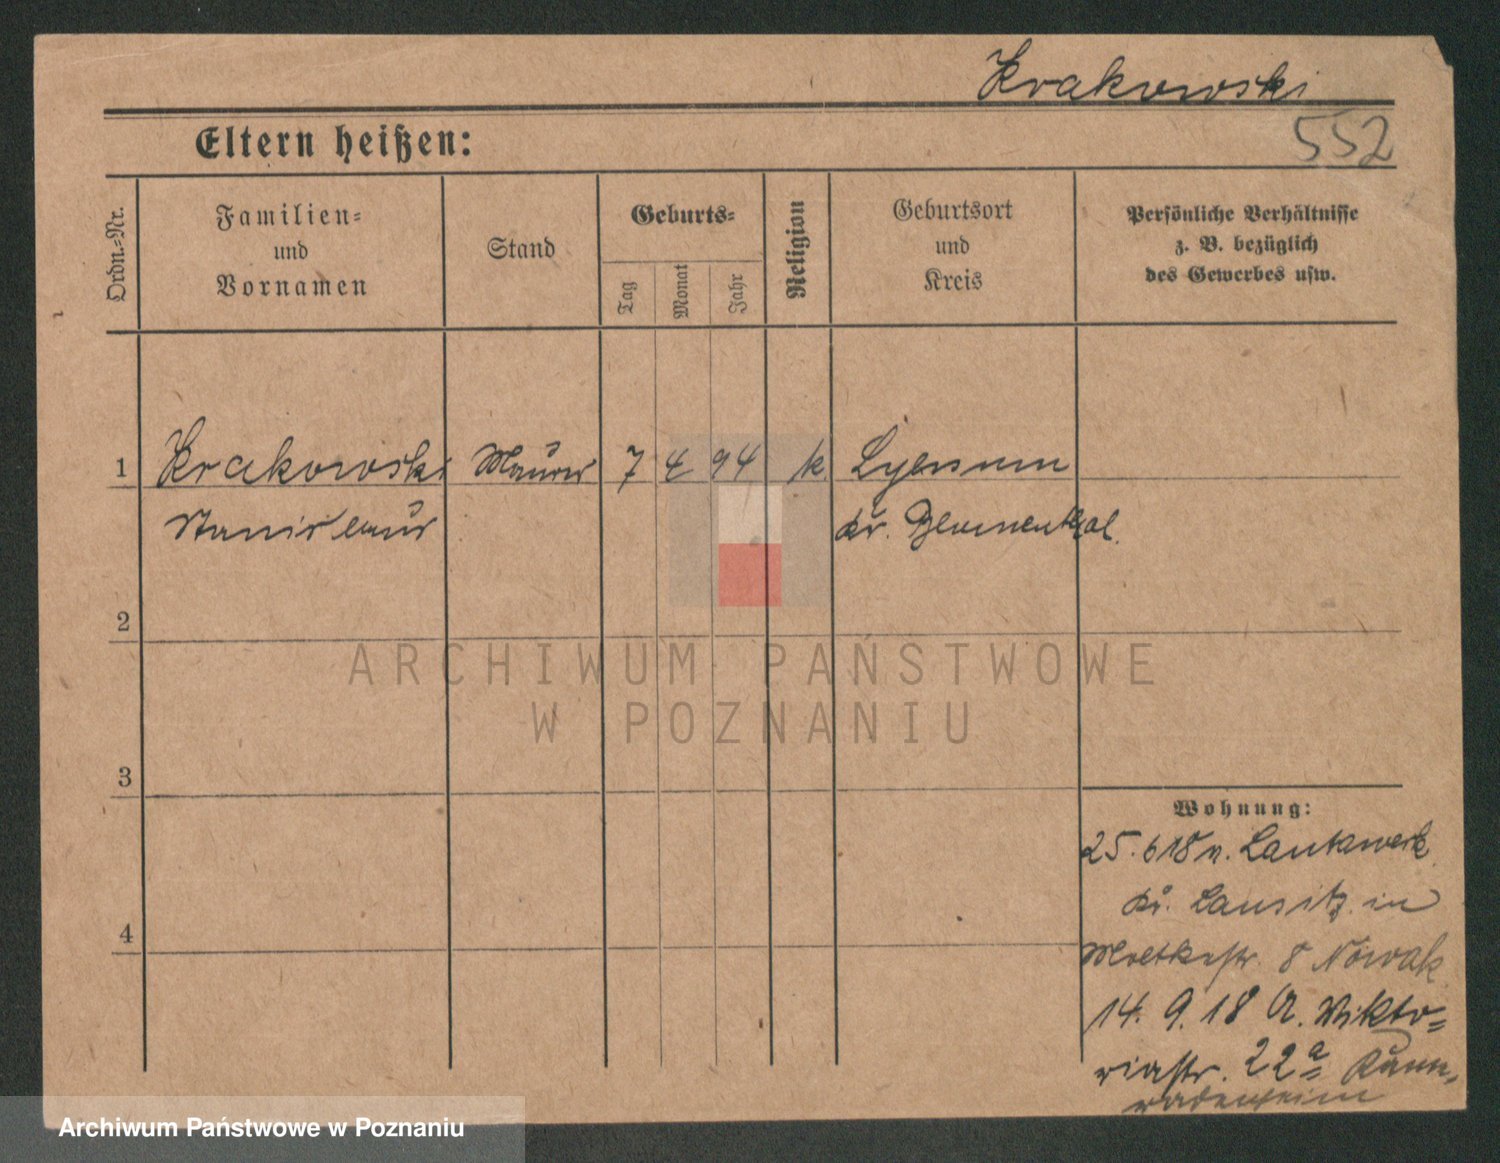 Krakowski
552
Eltern heißen:
Ordn.-Nr.
Familien-
und
Vornamen
Stand
Geburts-
Tag
Monat
Jahr
Religion
Geburtsort
und
Kreis
Persönliche Verhältnisse
z. B. bezüglich
des Gewerbes usw.
1 Krakowski Maurer 7 4 94 k.
Stanislaus Kr. Blumenthal.
2
ARCHIWUM PAŃSTWOWE
W POZNANIU
3
Wohnung:
25. 6 18 n. Lautawerk
Kr. Lausitz. in
4
Moltkestr. 8 Nowak
14. 9. 18 A. Wikto-
riastr. 22a
Archiwum Państwowe w Poznaniu